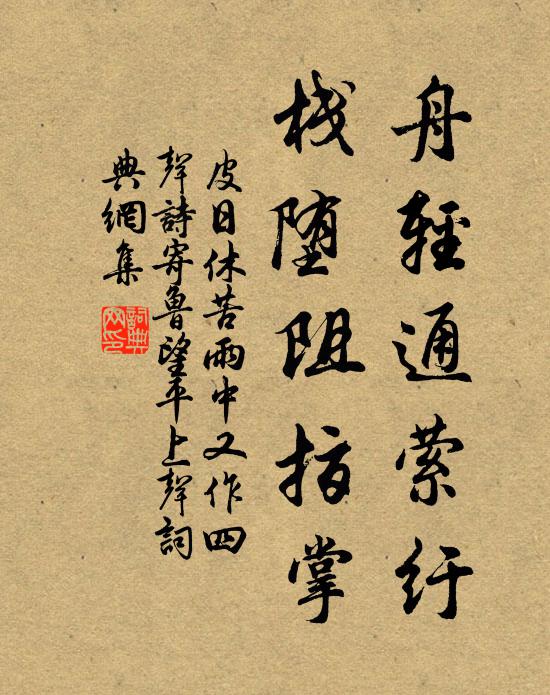 舟輕通縈紆
栈堕阻指掌
皮日休苦雨中又作四
聲詩寄魯望平上聲詞
典網集
詞典
网印